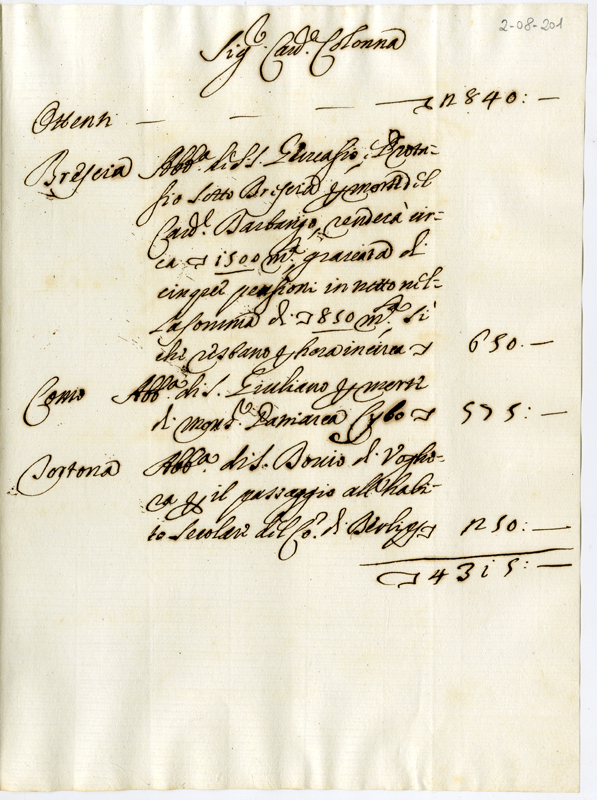 2-08-201
Sig.r Card.l Colonna
Ottenti — — — ▽ 2840:—
Brescia Abb.a di S.S. Gervasio, e Prota-
sio sotto Brescia p morte del
Card.l Barbarigo, renderà cir-
ca ▽ 1500 m.ta, gravata di
cinque pensioni in netto nel-
la somma di ▽ 850 m.ta Si
che restano p hora in circa ▽ 650:—
Como Abb.a di S. Giuliano p morte
di Mons.r Patriarca Cybo ▽ 575:—
Tortona Abb.a di S. Bovio di Voghe-
ra p il passaggio all'habi-
to secolare del Co. di ▽ 250:—
▽ 4315:—